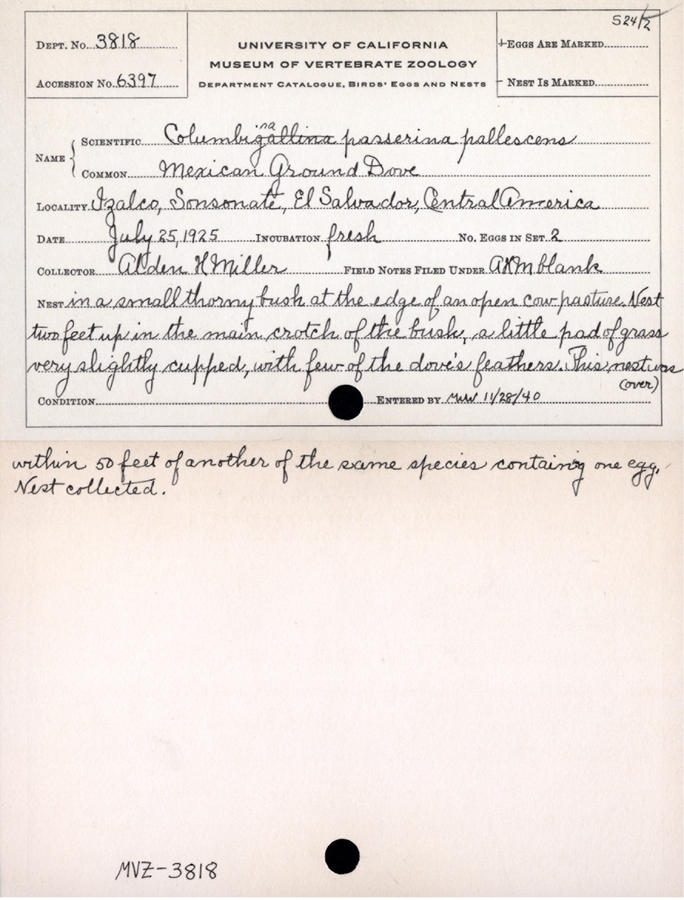 524/2
DEPT. No. 3818
UNIVERSITY OF CALIFORNIA
+EGGS ARE MARKED
MUSEUM OF VERTEBRATE ZOOLOGY
ACCESSION No. 6397
DEPARTMENT CATALOGUE, BIRDS' EGGS AND NESTS
- NEST IS MARKED
NAME
SCIENTIFIC Columbigallina na passerina pallescens
COMMON Mexican Ground Dove
LOCALITY Izalco, Sonsonate, El Salvador, Central America
DATE July 25, 1925 INCUBATION fresh No. EGGS IN SET 2
COLLECTOR Alden H Miller FIELD NOTES FILED UNDER AHM blank
NEST in a small thorny bush at the edge of an open cow pasture. Nest
two feet up in the main crotch of the bush, a little pad of grass
very slightly cupped, with few of the dove's feathers. This nest was
(over)
CONDITION ENTERED BY MW 11/28/40
within 50 feet of another of the same species containg one egg.
Nest collected.
MVZ-3818